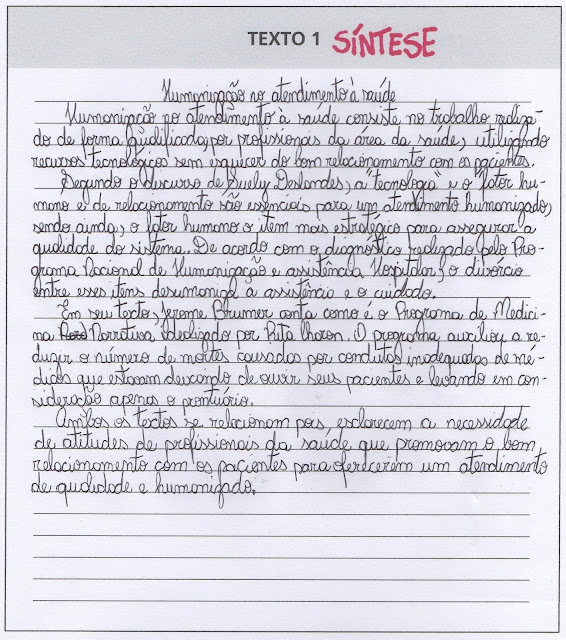 TEXTO 1 SÍNTESE
Humanização no atendimento à saúde
Humanização no atendimento à saúde consiste no trabalho realiza-
do de forma qualificada, por profissionais da área da saúde, utilizando
recursos tecnológicos sem esquecer do bom relacionamento com os pacientes.
Segundo o discurso de Suely Deslandes, a "tecnologia" e o "fator hu-
mano e de relacionamento são essenciais para um atendimento humanizado,
sendo ainda, o fator humano o item mais estratégico para assegurar a
qualidade do sistema. De acordo com o diagnóstico realizado pelo Pro-
grama Nacional de Humanização e assistência Hospitalar, o divórcio
entre esses itens desumaniza a assistência e o cuidado.
Em seu texto, Jerome Brumer conta como é o Programa de Medici-
na Narrativa Idealizado por Rita Charon. O programa, auxiliou a re-
duzir o número de mortes causadas por condutas inadequadas de mé-
dicos que estavam deixando de ouvir seus pacientes e levando em con-
sideração apenas o prontuário.
Ambos os textos se relacionam pois esclarecem a necessidade
de atitudes de profissionais da saúde que promovam o bom
relacionamento com os pacientes para oferecerem um atendimento
de qualidade e humanizado.